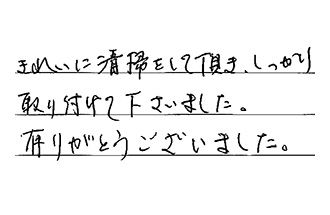 きれいに清掃をして頂き、しっかり
取り付けて下さいました。
有りがとうございました。